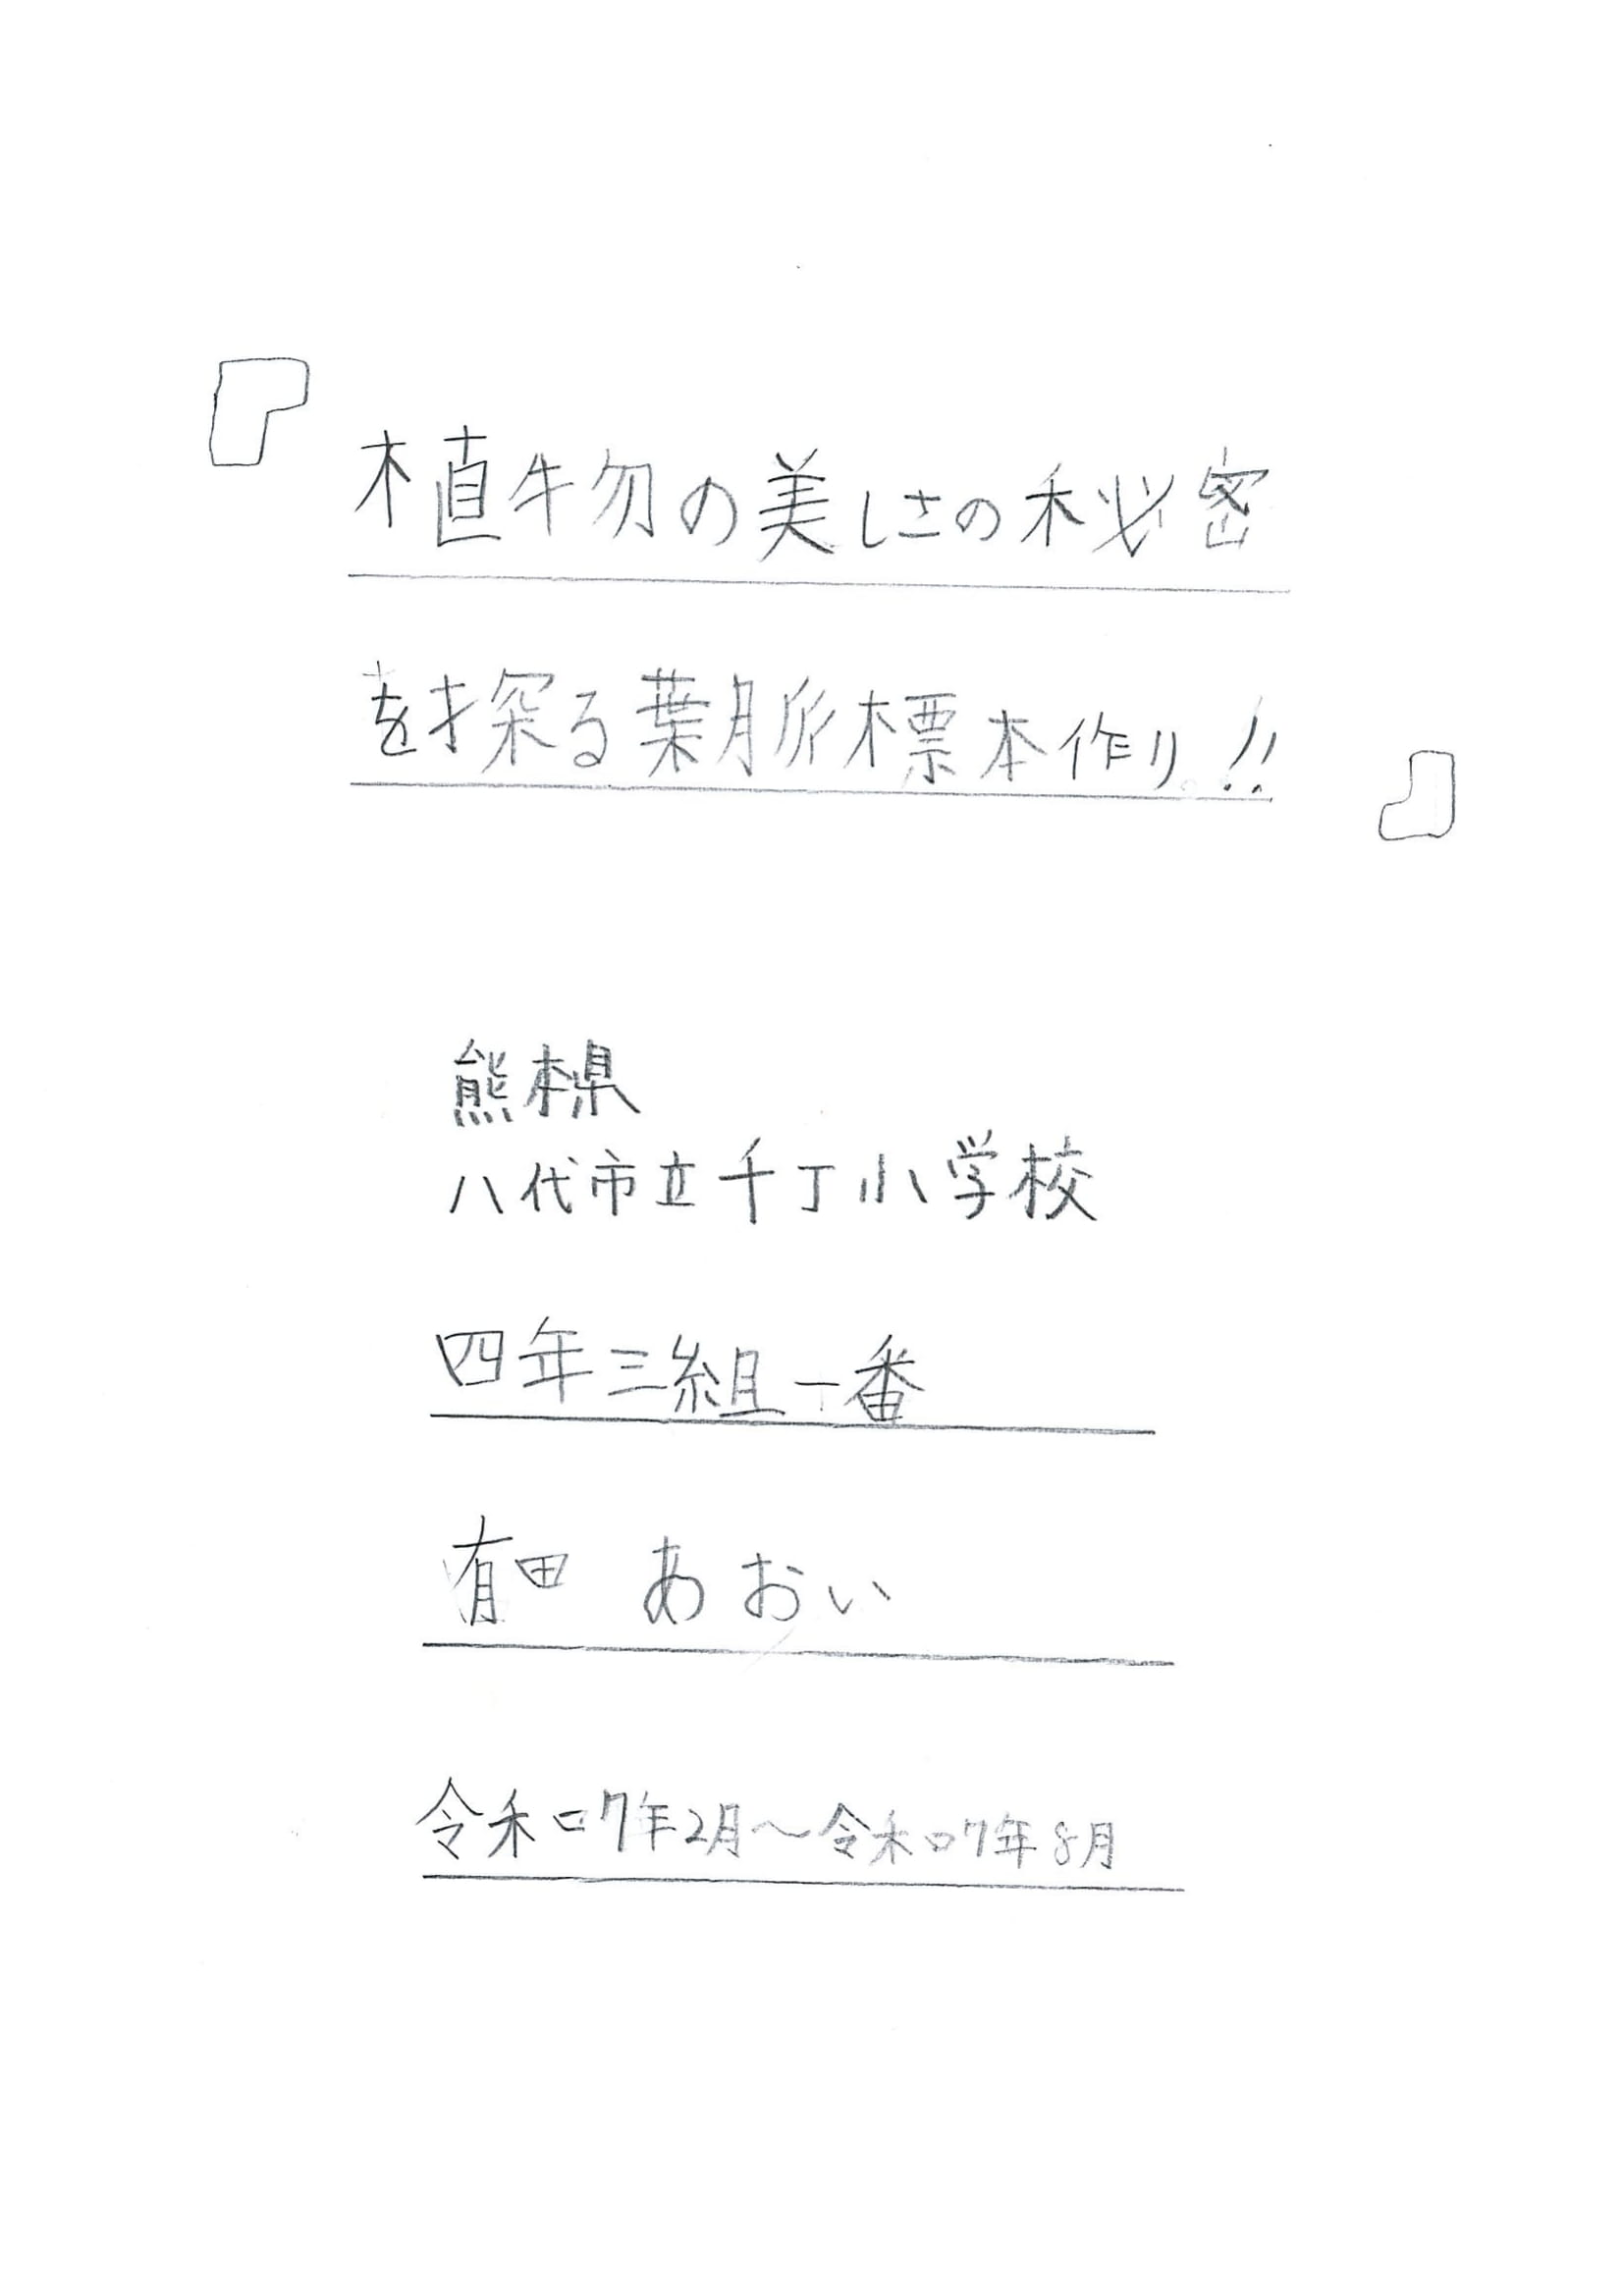 『植物の美しさの秘密
を探る葉脈標本作り!!』
熊本県
八代市立千丁小学校
四年三組一番
有田 あおい
令和7年2月～令和7年8月